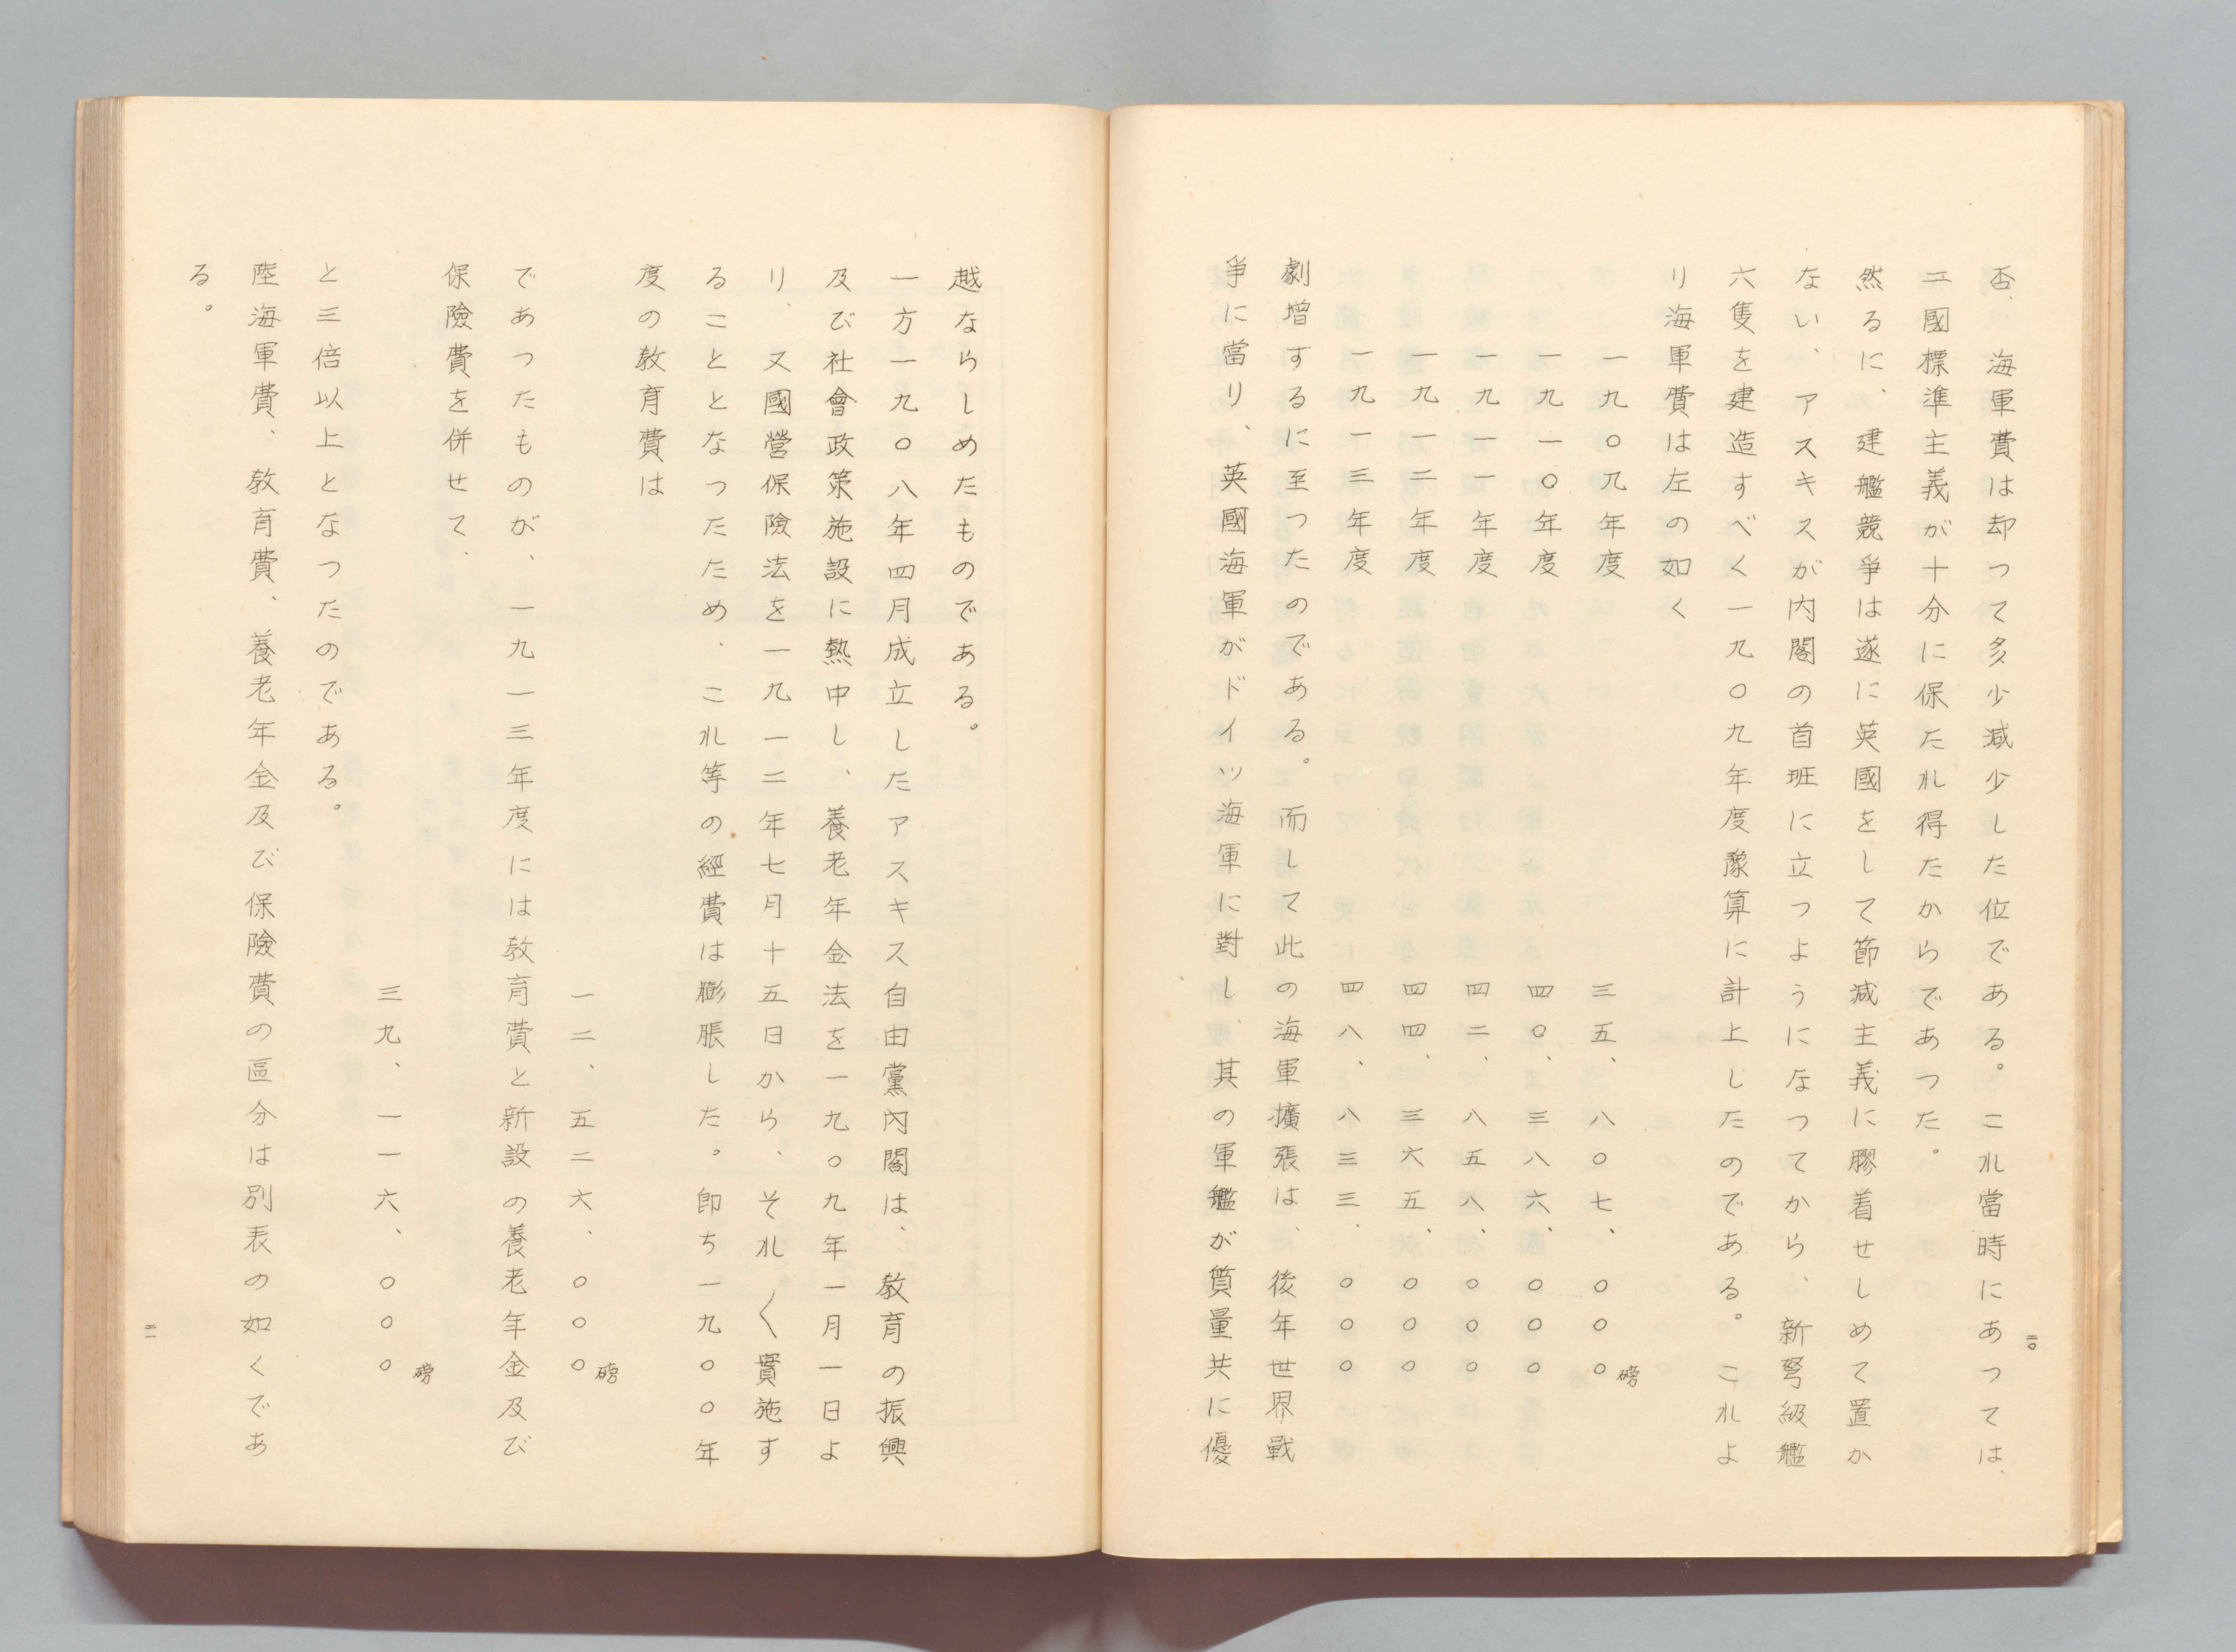 二〇
否、海軍費は却つて多少減少した位である。これ當時にあつては、
二國標準主義が十分に保たれ得たからであつた。
然るに、建艦競爭は遂に英國をして節減主義に膠着せしめて置か
ない、アスキスが内閣の首班に立つようになつてから、新弩級艦
六隻を建造すべく一九〇九年度豫算に計上したのである。これよ
り海軍費は左の如く
一九〇九年度 三五、八〇七、〇〇〇磅
一九一〇年度 四〇、三八六、〇〇〇
一九一一年度 四二、八五八、〇〇〇
一九一二年度 四四、三六五、〇〇〇
一九一三年度 四八、八三三、〇〇〇
劇增するに至つたのである。而して此の海軍擴張は、後年世界戰
爭に當り、英國海軍がドイツ海軍に對し、其の軍艦が質量共に優
越ならしめたものである。
一方一九〇八年四月成立したアスキス自由黨内閣は、敎育の振興
及び社會政策施設に熱中し、養老年金法を一九〇九年一月一日よ
り、又國營保險法を一九一二年七月十五日から、それ〱實施す
ることとなつたため、これ等の經費は膨脹した。卽ち一九〇〇年
度の敎育費は
一二、五二六、〇〇〇磅
であつたものが、一九一三年度には敎育費と新設の養老年金及び
保險費を併せて、
三九、一一六、〇〇〇磅
と三倍以上となつたのである。
陸海軍費、敎育費、養老年金及び保險費の區分は別表の如くであ
る。
二一